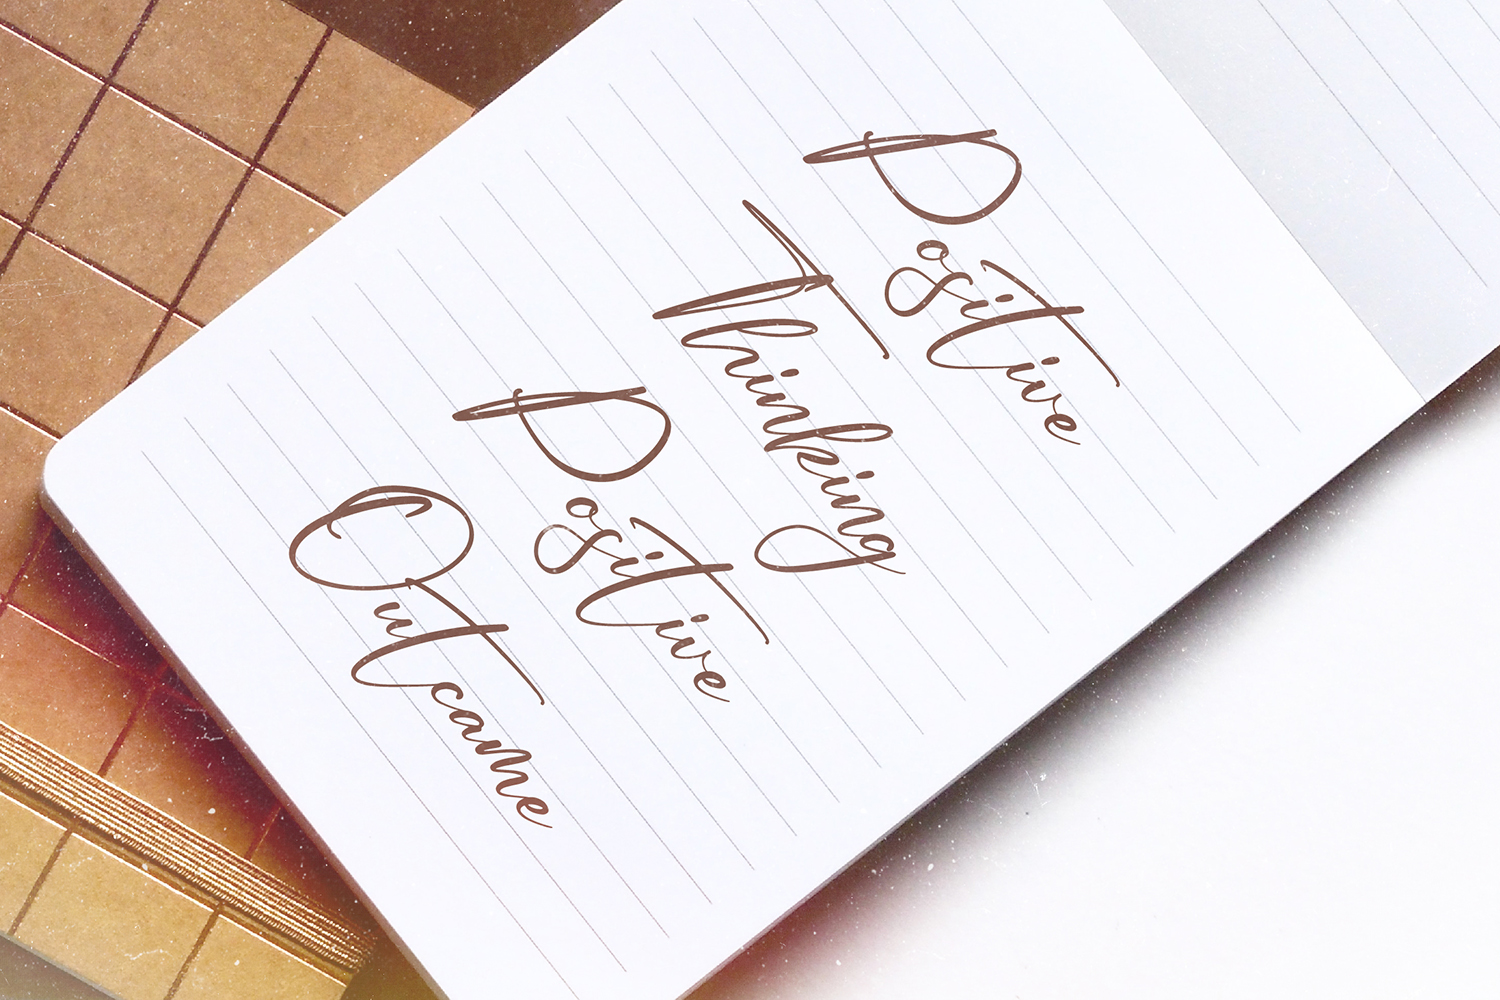 Positive
Thinking
Positive
Outcame